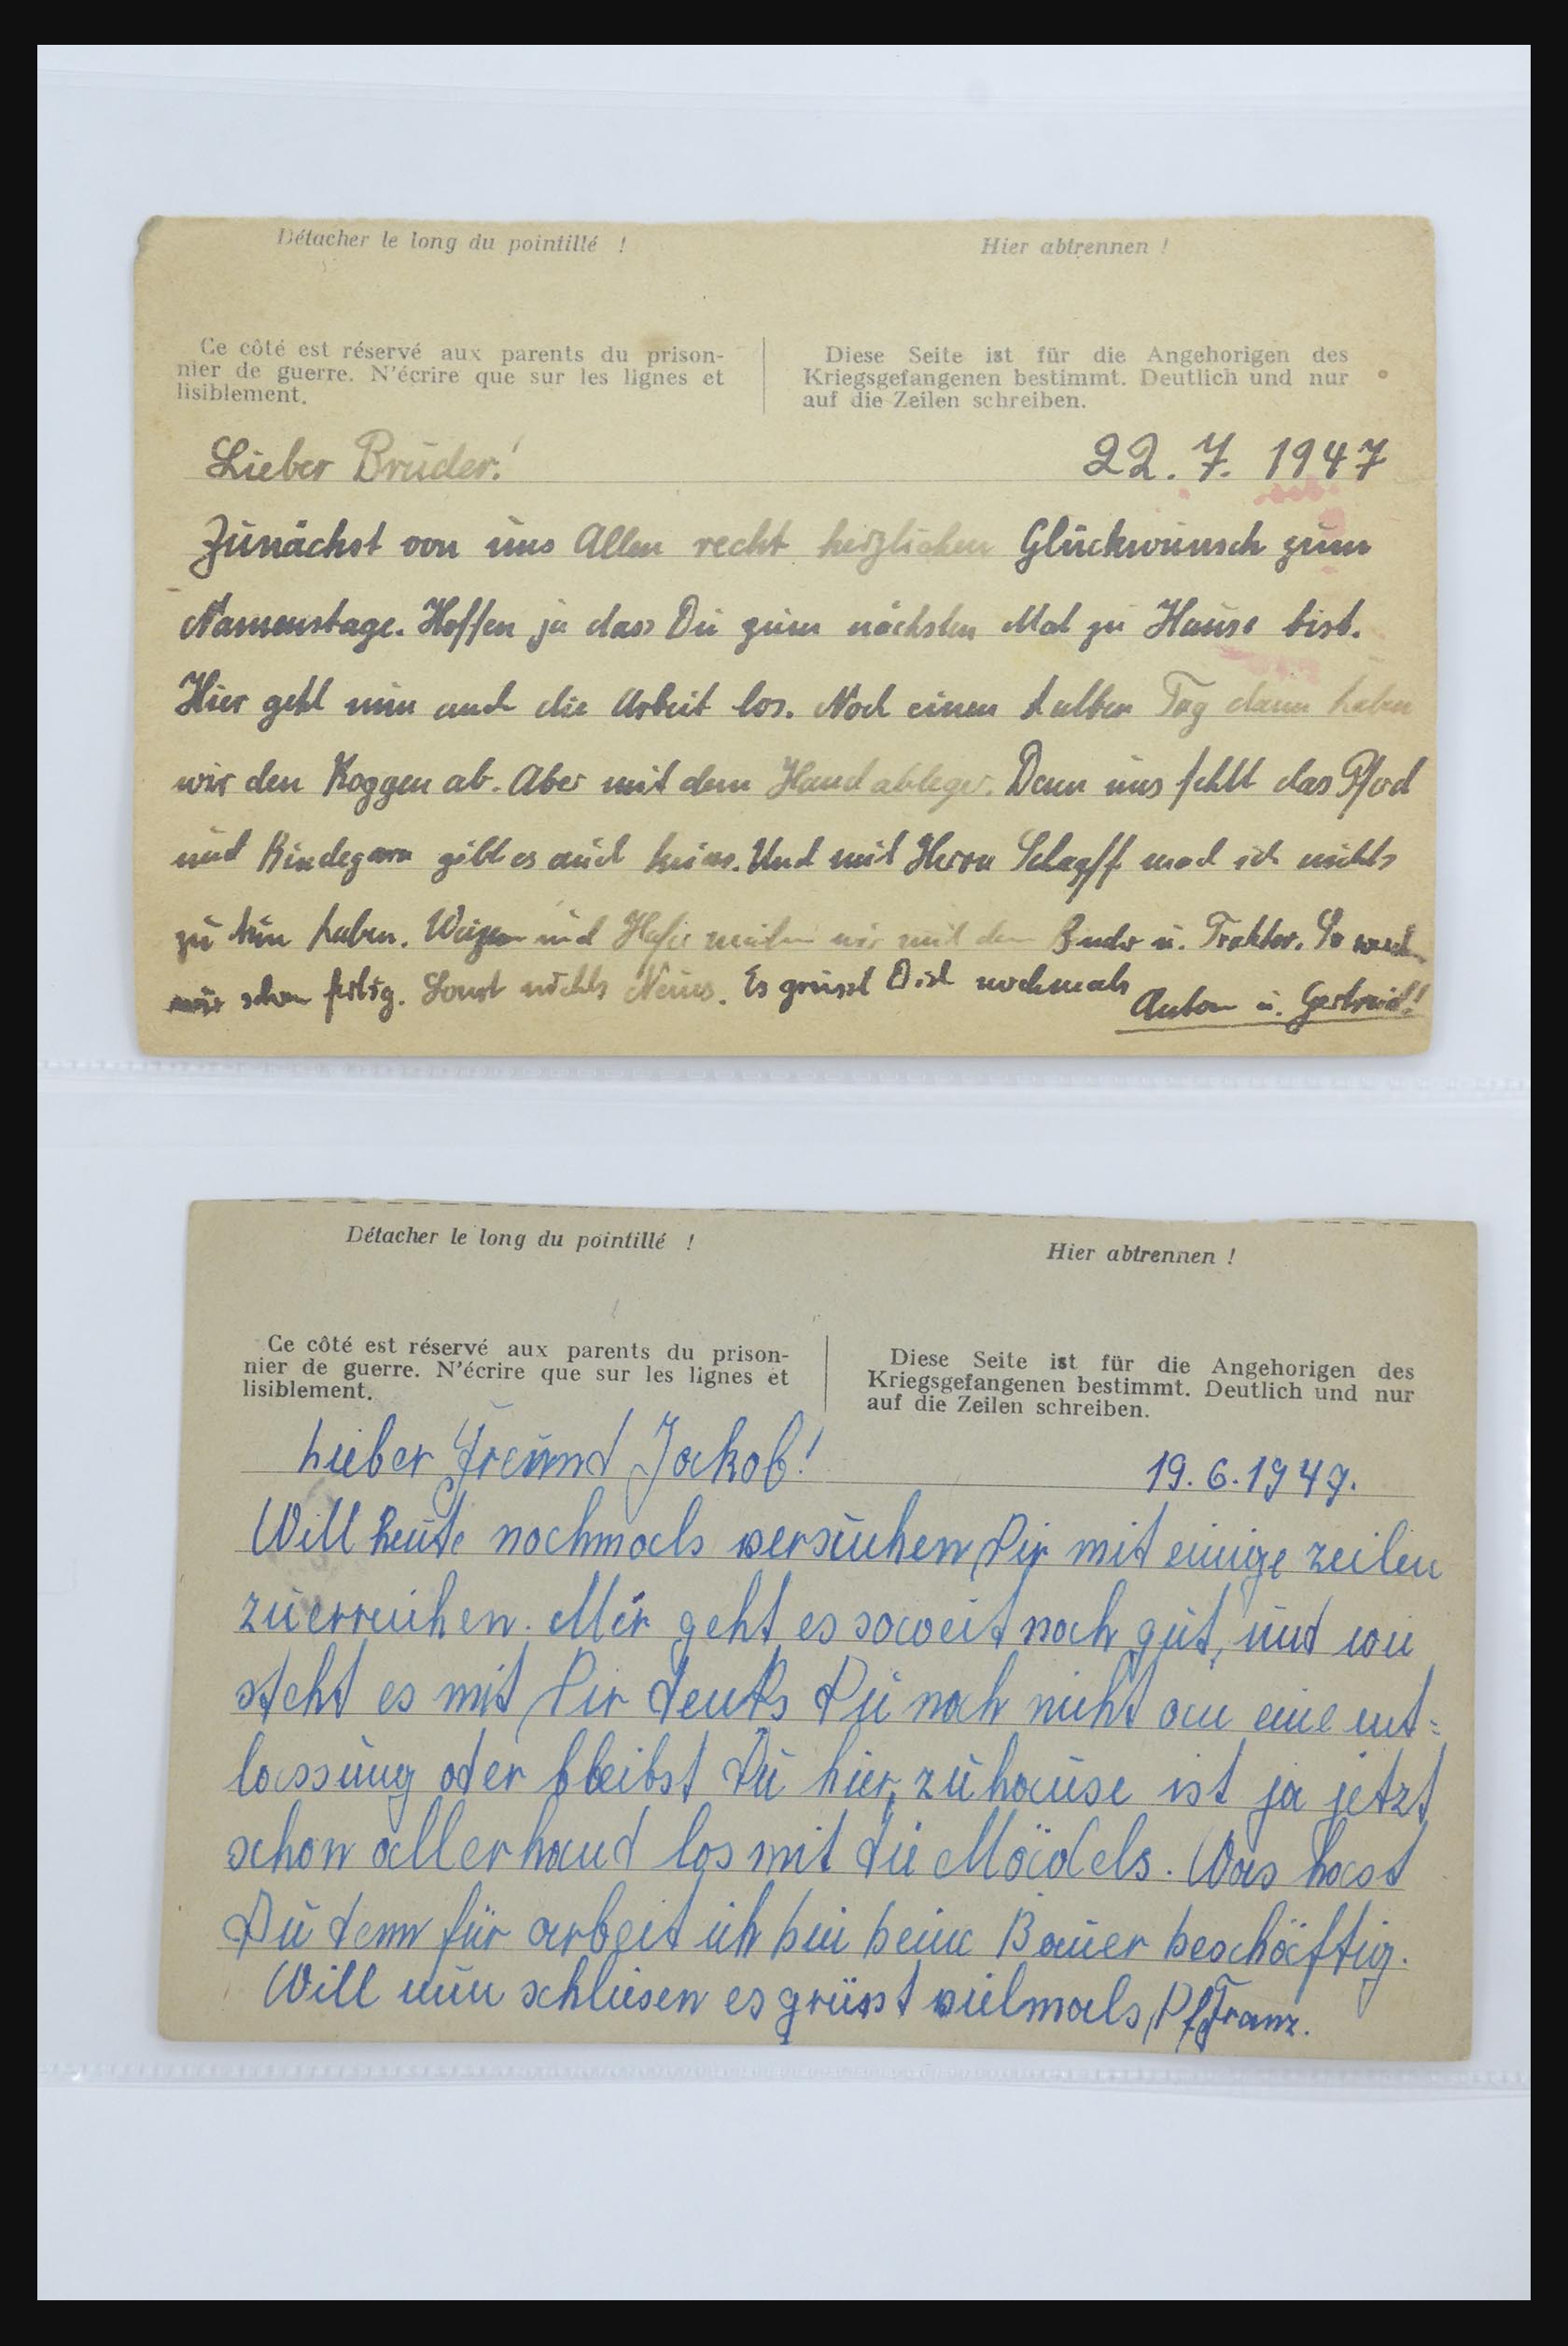 Détacher le long du pointillé !
Hier abtrennen !
Ce côté est réservé aux parents du prison-
nier de guerre. N'écrire que sur les lignes et
lisiblement.
Diese Seite ist für die Angehorigen des
Kriegsgefangenen bestimmt. Deutlich und nur
auf die Zeilen schreiben.
Lieber Bruder! 22. 7. 1947
Zunächst von uns Allen recht herzlichen Glückwunsch zum
Namenstage. Hoffen ja dass Du zum nächsten Mal zu Hause bist.
Hier geht nun auch die Arbeit los. Noch einen halben Tag dann haben
wir den Roggen ab. Aber mit dem Handableger. Denn uns fehlt das Pferd
und Bindegarn gibt es auch keins. Und mit Herrn mach ich nichts
zu tun haben. Weizen und Hafer wir mit dem Binder u. Traktor. So werden
wir schon fertig. Sonst nichts Neues. Es grüsst Dich nochmals
Anton u. Gertrud!
Détacher le long du pointillé !
Hier abtrennen !
Ce côté est réservé aux parents du prison-
nier de guerre. N'écrire que sur les lignes et
lisiblement.
Diese Seite ist für die Angehorigen des
Kriegsgefangenen bestimmt. Deutlich und nur
auf die Zeilen schreiben.
Lieber Freund Jakob! 19. 6. 1947.
Will heute nochmals versuchen Dir mit einige zeilen
zu erreichen. Mir geht es soweit noch gut, und wie
steht es mit Dir denks Du noch nicht an eine ent=
lassung oder bleibst Du hier, zu hause ist ja jetzt
schon allerhand los mit die Mädels. Was hast
Du denn für arbeit ich bin beim Bauer beschäftig.
Will nun schliesen es grüsst vielmals, Franz.